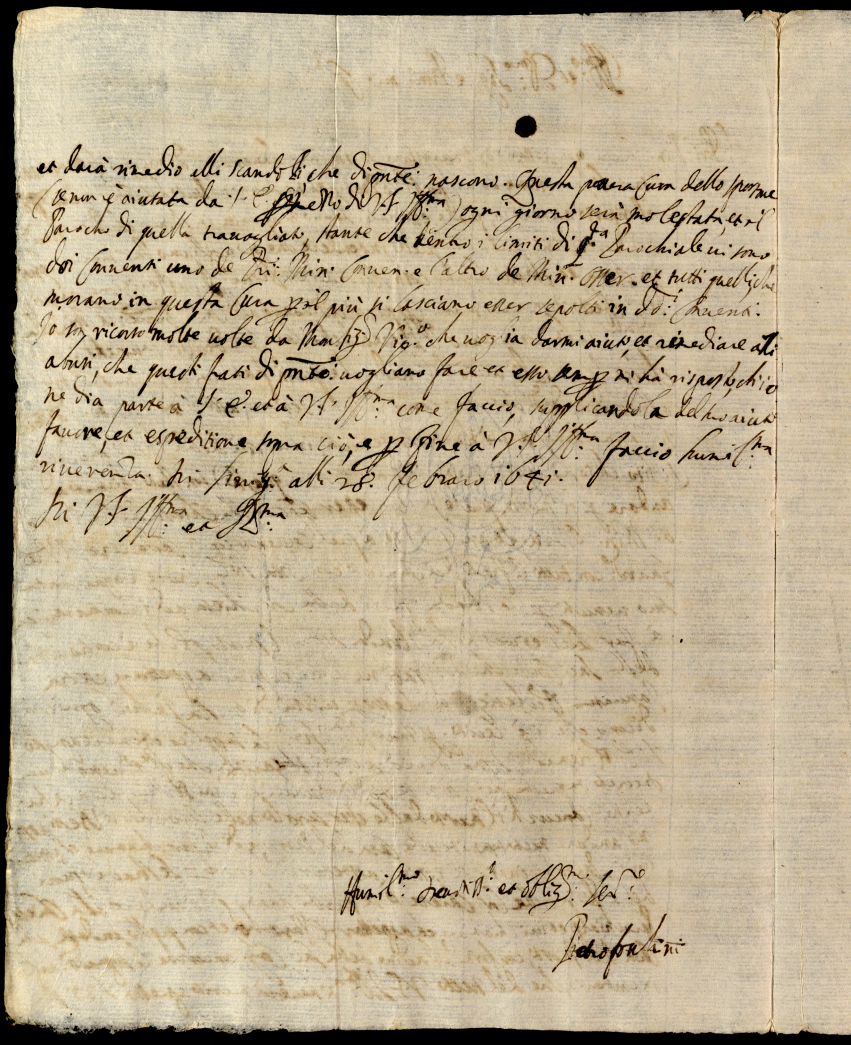 et darà rimedio alli scandoli che di pnte: nascono. Questa povera Cura dello
(se non è aiutata da S. E. per mezzo di V. S. Illma:) ogni giorno serà molestata, et il
Parocho di quella travagliato, stante che dentro i limiti di qta Parochiale vi sono
doi Conventi uno de Pri: Min: Conven. e l'altro de Min: Osser. et tutti quelli, che
morano in questa Cura per il più si lasciano esser sepolti in dd: Conventi.
Io son ricorso molte volte da Monsigr Vico. che voglia darmi aiuto, et rimediare alli
abusi, che questi frati di pnte: vogliano fare et esso semp mi hà risposto, ch'io
ne dia parte à S. E. et à V. S. Illma: come faccio, supplicandola del suo aiuto
favore, et espeditione sopra ciò, e per fine à V. S. Illma: faccio humilma:
riverenza. Di alli 28. Febraro 1641.
Di V. S. Illma: et Rma:
Humilmo: Devotiss: et obligm: Ser:
Pietro